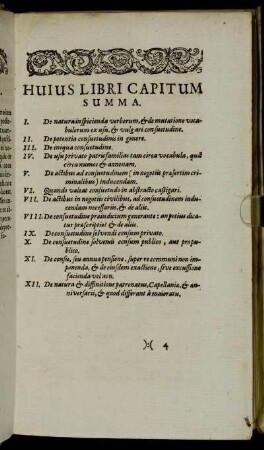 HUIUS LIBRI CAPITUM
SUMMA.
I. De natura inspicienda verborum, & de mutatione voca-
bulorum ex usu, & vulgari consuetudine.
II. De potentia consuetudinis in genere.
III. De iniqua consuetudine.
IV. De usu privato patrisfamilias tam circa vocabula, quã
circa numos & annonam.
V. De actibus ad consuetudinem [in negotiis præsertim
criminalibus] inducendam.
VI. Quando valeat consuetudo in abstracto castigari.
VII. De actibus in negotiis civilibus, ad consuetudinem indu-
cendam necessariis, & de aliis.
VIII. De consuetudine præiudicium generante: an potius dica-
tur præscriptio? & de aliis.
IX. De consuetudine solvendi censum privato.
X. De consuetudine solvendi censum publico, aut pro
publico.
XI. De censu, seu annua pensione, super re communi non im-
ponenda, & de eiusdem exactione, sive excussione
facienda vel non.
XII. De natura & diffinitione patronatus, Capellania, & an-
niversarii, & quod differant à maioratu.
):( 4